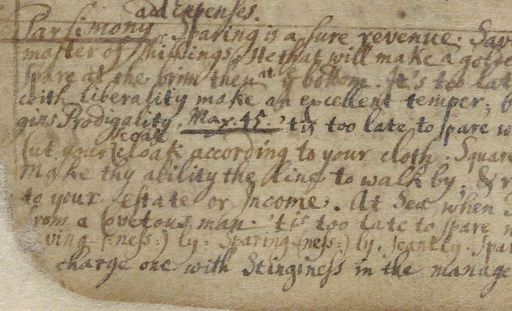 add Expenses.
Parsimony. Sparing is a sure revenue. Sav
master of Shillings. He that will make a golde
spare at the brim then at ye bottom. it's too lat
with liberality make an excellent temper; b
gins Prodigality. Mar. 45. 'tis too late to spare w
Coat
Cut your Cloak according to your cloth. Square
make thy ability the line to walk by, & r
to your Estate or Income. At Sea when
from a Covetous man. 'tis too late to spare
ving (-ness:) ly. Sparing (-ness:) ly. Scantly. Spar
charge one with Stinginess in the manage